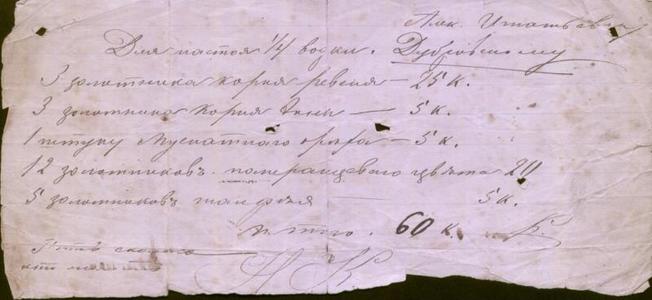 Алк. Игнатьевичу
Для настоя 1/4 водки. Дубровскому
3 золотника корня ревеня — 25 к.
3 золотника корня — 5 к.
1 штуку мускатного ореха — 5 к.
12 золотниковъ померанцеваго цвѣта 20
5 золотниковъ шалфея — 5 к.
итого. 60 к.